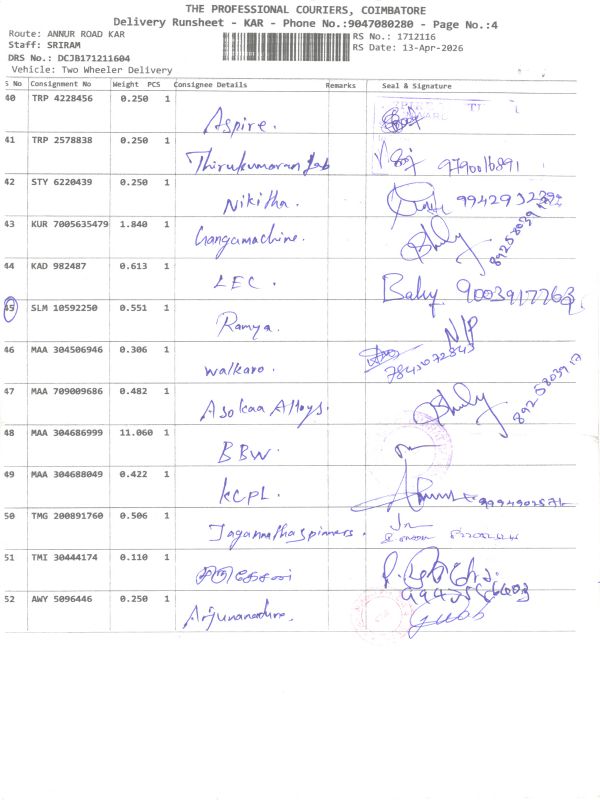 THE PROFESSIONAL COURIERS, COIMBATORE
Delivery Runsheet - KAR - Phone No.:9047080280 - Page No.:4
Route: ANNUR ROAD KAR
RS No.: 1712116
Staff: SRIRAM
RS Date: 13-Apr-2026
DRS No.: DCJB171211604
Vehicle: Two Wheeler Delivery
S No Consignment No Weight PCS Consignee Details Remarks Seal & Signature
40 TRP 4228456 0.250 1 Aspire.
41 TRP 2578838 0.250 1 Thirukumaran Lab 9790016891
42 STY 6220439 0.250 1 Nikitha.
43 KUR 7005635479 1.840 1 Gangamachine.
44 KAD 982487 0.613 1 LEC. Baby 9003917763
45 SLM 10592250 0.551 1 Ramya. N/P
46 MAA 304506946 0.306 1 walkaro.
47 MAA 709009686 0.482 1 Asokaa Alloys. 8925803917
48 MAA 304686999 11.060 1 BBW.
49 MAA 304688049 0.422 1 KCPL.
50 TMG 200891760 0.506 1 Jagannatha spinners.
51 TMI 30444174 0.110 1
52 AWY 5096446 0.250 1 Arjunanadure.